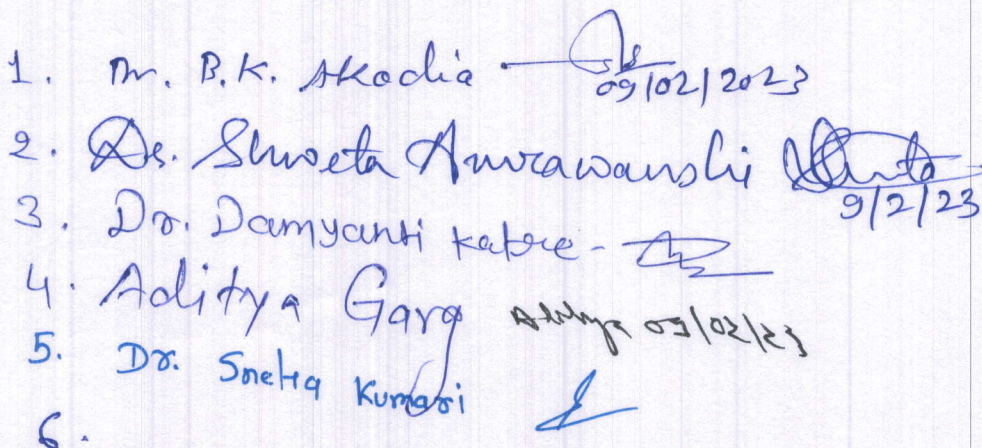 1. Dr. B.K. Akodia 09/02/2023
2. Dr. Shweta Anurawanshi 9/2/23
3. Dr. Damyanti Katre -
4. Aditya Garg Aditya 09/02/23
5. Dr. Sneha Kumari
6.